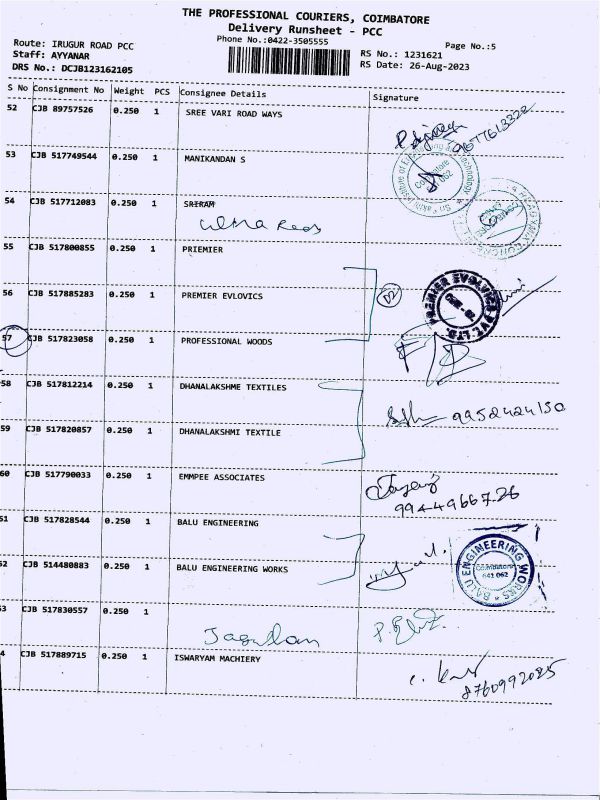 THE PROFESSIONAL COURIERS, COIMBATORE
Delivery Runsheet - PCC
Phone No.:0422-3505555
Page No.:5
Route: IRUGUR ROAD PCC
Staff: AYYANAR
DRS No.: DCJB123162105
RS No.: 1231621
RS Date: 26-Aug-2023
S No Consignment No Weight PCS Consignee Details Signature
52 CJB 89757526 0.250 1 SREE VARI ROAD WAYS
9677613322
53 CJB 517749544 0.250 1 MANIKANDAN S
54 CJB 517712083 0.250 1 SRIRAM
55 CJB 517800855 0.250 1 PRIEMIER
56 CJB 517885283 0.250 1 PREMIER EVLOVICS
02
PREMIER EVOLVICS PVT. LTD.
57 CJB 517823058 0.250 1 PROFESSIONAL WOODS
58 CJB 517812214 0.250 1 DHANALAKSHME TEXTILES
9952424150
59 CJB 517820857 0.250 1 DHANALAKSHMI TEXTILE
60 CJB 517790033 0.250 1 EMMPEE ASSOCIATES
9944966726
51 CJB 517828544 0.250 1 BALU ENGINEERING
52 CJB 514480883 0.250 1 BALU ENGINEERING WORKS
BALU ENGINEERING WORKS
Coimbatore
641 062
53 CJB 517830557 0.250 1
4 CJB 517889715 0.250 1 ISWARYAM MACHIERY
8760992085